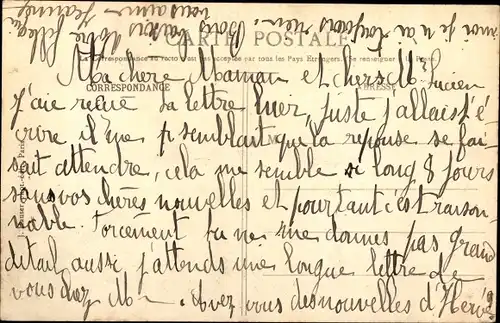 CARTE POSTALE
La Correspondance au recto n'est pas acceptée par tous les Pays Etrangers. (Se renseigner à la Poste)
CORRESPONDANCE
ADRESSE
Ma chere Maman et chers Lucien
J'aie reçue ta lettre hier, juste j'allais t'é
crire il me semblait que la reponse se fai
sait attendre, cela me semble si long 8 jours
sans vos chères nouvelles et pourtant c'est raison
nable. Forcement tu ne me donnes pas grand
détail aussi, j'attends une longue lettre de
vous chez M Avez vous des nouvelles d'Hervé
moi je n'ai toujours rien. Bons
baisers votre
vous aime Jeanne